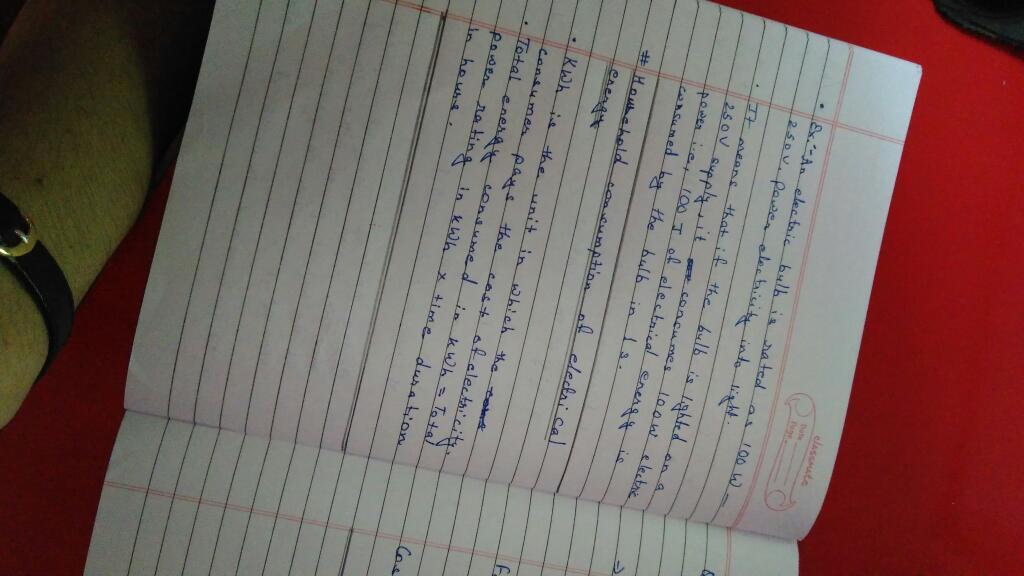 classmate
Date
Page
• Ex:-An electric bulb is rated as 100W-
250V. Power electricity into light.
• It means that if the bulb is lighted on a
250V supply, it consumes 100W electric
power i.e, 100 J of electrical energy is
consumed by the bulb in 1s.
# Household consumption of electrical
energy
• KWh is the unit in which the
consumer pays the cost of electricity.
• Total energy consumed in kWh = Total
power rating in kWh x time duration
in hours.
Cos